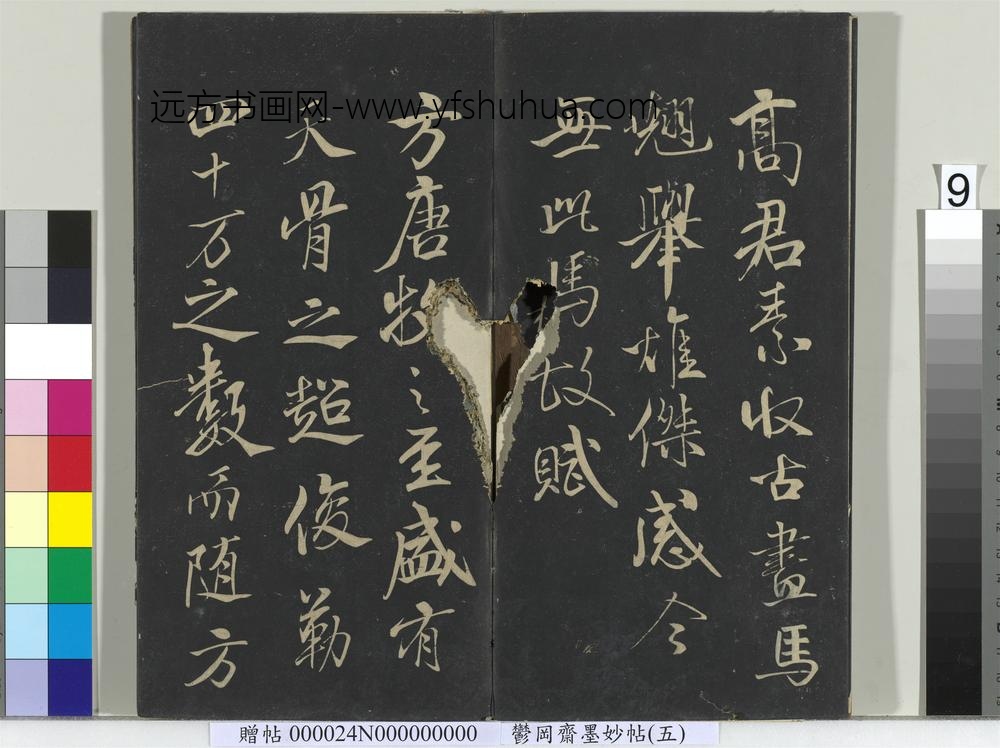 远方书画网-www.yfshuhua.com
高君素收古畫馬
翹舉雄傑感今
無此馬故賦
方唐牧之至盛有
天骨之超俊勒
四十万之數而随方
9
贈帖 000024N000000000 鬱岡齋墨妙帖(五)